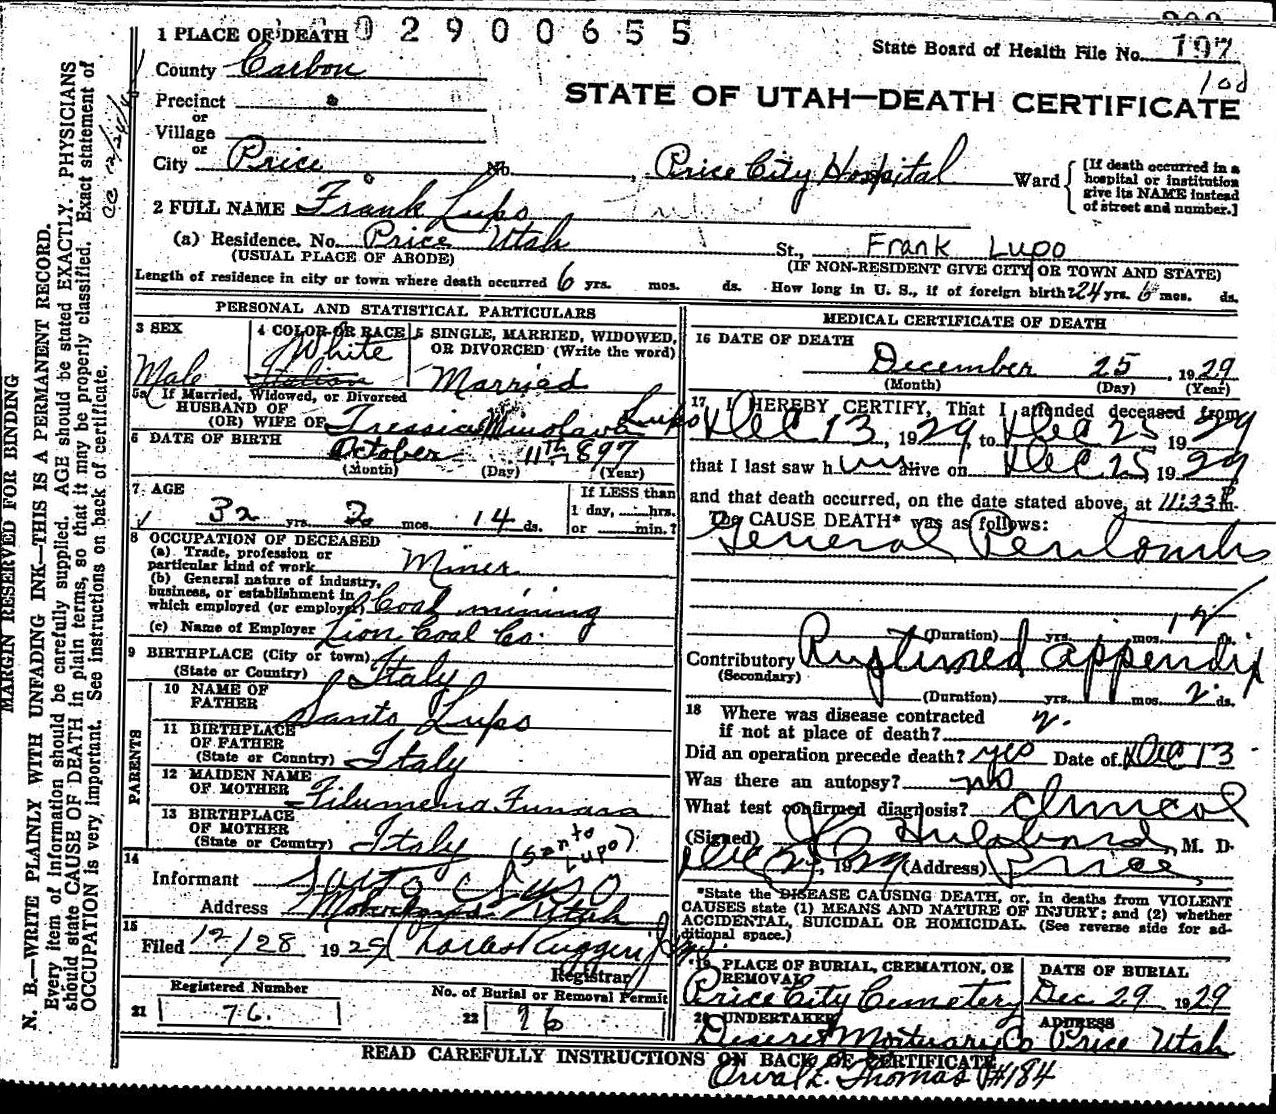 02900655
1 PLACE OF DEATH
State Board of Health File No. 197
108
County Carbon
STATE OF UTAH—DEATH CERTIFICATE
Precinct
or
Village
or
City Price No. , Price City Hospital Ward
[If death occurred in a
hospital or institution
give its NAME instead
of street and number.]
2 FULL NAME Frank Lupo
(a) Residence. No. Price Utah St., Frank Lupo
(USUAL PLACE OF ABODE) (IF NON-RESIDENT GIVE CITY OR TOWN AND STATE)
Length of residence in city or town where death occurred 6 yrs. mos. ds. How long in U. S., if of foreign birth? 24 yrs. 6 mos. ds.
PERSONAL AND STATISTICAL PARTICULARS
3 SEX
Male
4 COLOR OR RACE
White
Italian
5 SINGLE, MARRIED, WIDOWED,
OR DIVORCED (Write the word)
Married
5a If Married, Widowed, or Divorced
HUSBAND OF
(OR) WIFE OF Lupo
6 DATE OF BIRTH October 11th 1897
(Month) (Day) (Year)
7. AGE
32 yrs. 2 mos. 14 ds.
If LESS than
1 day, hrs.
or min.?
8 OCCUPATION OF DECEASED
(a) Trade, profession or
particular kind of work Miner
(b) General nature of industry,
business, or establishment in
which employed (or employer) Coal mining
(c) Name of Employer Lion Coal Co.
9 BIRTHPLACE (City or town)
(State or Country) Italy
PARENTS
10 NAME OF
FATHER Santo Lupo
11 BIRTHPLACE
OF FATHER
(State or Country) Italy
12 MAIDEN NAME
OF MOTHER Filumena Funaro
13 BIRTHPLACE
OF MOTHER
(State or Country) Italy
(Santo
Lupo)
14
Informant Santo Lupo
Address Utah
15
Filed 12/28 1929 Charles Ruggeri Jr
Registrar
Registered Number
21 76.
No. of Burial or Removal Permit
22 76
MEDICAL CERTIFICATE OF DEATH
16 DATE OF DEATH
December 25, 1929
(Month) (Day) (Year)
17 I HEREBY CERTIFY, That I attended deceased from
Dec 13, 1929, to Dec 25 1929
that I last saw him alive on Dec 25, 1929
and that death occurred, on the date stated above, at 11:33 P m.
The CAUSE DEATH* was as follows:
General Peritonitis
(Duration) yrs. mos. 12 ds.
Contributory Ruptured appendix
(Secondary)
(Duration) yrs. mos. 2 ds.
18 Where was disease contracted
if not at place of death?
Did an operation precede death? yes Date of Dec 13
Was there an autopsy? no
What test confirmed diagnosis? Clinical
(Signed) Hubbard, M. D.
Dec , 1929 (Address) Price
*State the DISEASE CAUSING DEATH, or, in deaths from VIOLENT
CAUSES state (1) MEANS AND NATURE OF INJURY; and (2) whether
ACCIDENTAL, SUICIDAL OR HOMICIDAL. (See reverse side for ad-
ditional space.)
19 PLACE OF BURIAL, CREMATION, OR
REMOVAL
Price City Cemetery
DATE OF BURIAL
Dec 29 1929
20 UNDERTAKER
Deseret Mortuary Co
ADDRESS
Price Utah
READ CAREFULLY INSTRUCTIONS ON BACK OF CERTIFICATE
Orval L. Thomas #184
MARGIN RESERVED FOR BINDING
N. B.—WRITE PLAINLY WITH UNFADING INK—THIS IS A PERMANENT RECORD.
Every item of information should be carefully supplied. AGE should be stated EXACTLY. PHYSICIANS
should state CAUSE OF DEATH in plain terms, so that it may be properly classified. Exact statement of
OCCUPATION is very important. See instructions on back of certificate.